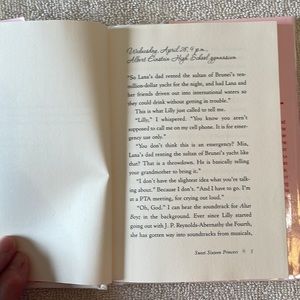 Wednesday, April 28, 9 p.m.,
Albert Einstein High School gymnasium
"So Lana's dad rented the sultan of Brunei's ten-
million-dollar yacht for the night, and had Lana and
her friends driven out into international waters so
they could drink without getting in trouble."
This is what Lilly just called to tell me.
"Lilly," I whispered. "You know you aren't
supposed to call me on my cell phone. It is for emer-
gency use only."
"You don't think this is an emergency? Mia,
Lana's dad renting the sultan of Brunei's yacht like
that? That is a throwdown. He is basically telling
your grandmother to bring it."
"I don't have the slightest idea what you're talk-
ing about." Because I don't. "And I have to go. I'm
at a PTA meeting, for crying out loud."
"Oh, God." I can hear the soundtrack for Altar
Boyz in the background. Ever since Lilly started
going out with J. P. Reynolds-Abernathy the Fourth,
she has gotten way into soundtracks from musicals,
Sweet Sixteen Princess